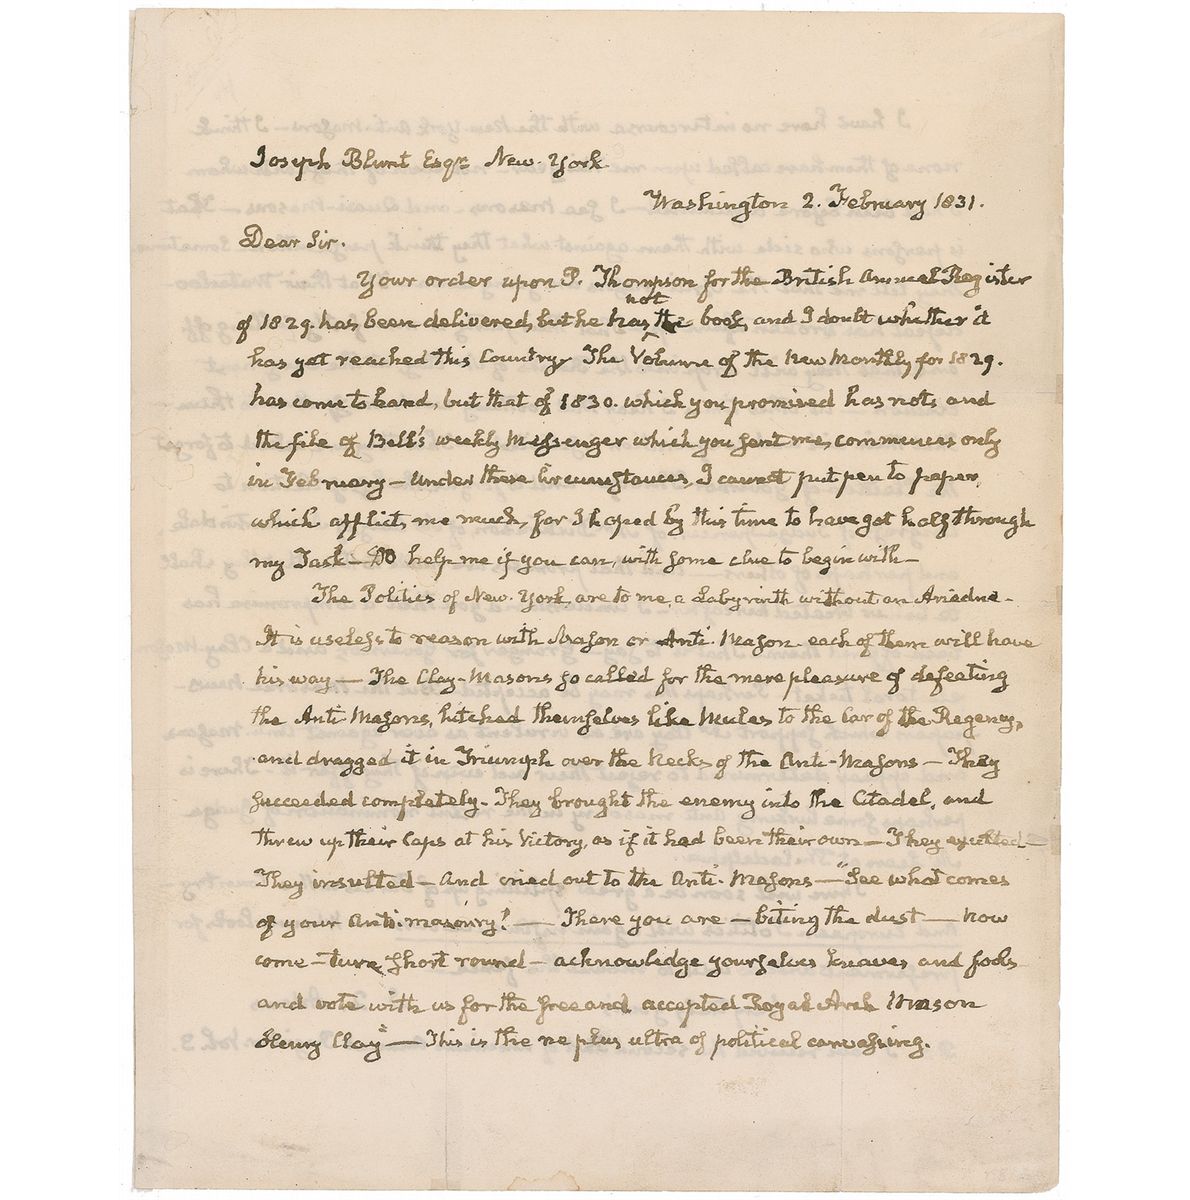 Joseph Blunt Esqr. New-York
Washington 2. February 1831.
Dear Sir.
Your order upon P. Thompson for the British Annual Register
of 1829. has been delivered, but he has not the book, and I doubt whether it
has yet reached this Country. The Volume of the New Monthly, for 1829.
has come to hand, but that of 1830. which you promised has not, and
the file of Bell's weekly Messenger which you sent me, commences only
in February — Under these Circumstances, I cannot put pen to paper,
which afflicts me much, for I hoped by this time to have got half through
my Task — Do help me if you can, with some clue to begin with —
The Politics of New-York, are to me, a Labyrinth without an Ariadne.
It is useless to reason with Mason or Anti-Mason each of them will have
his way — The Clay-Masons so called for the mere pleasure of defeating
the Anti-Masons, hitched themselves like Mules to the Car of the Regency,
and dragged it in Triumph over the Necks of the Anti-Masons — They
succeeded completely. They brought the enemy into the Citadel, and
threw up their Caps at his Victory, as if it had been their own — They exulted —
They insulted — and cried out to the Anti-Masons — "See what comes
of your Anti-masonry! — There you are — biting the dust — now
come — turn short round — acknowledge yourselves knaves and fools
and vote with us for the free and accepted Royal Arch Mason
Henry Clay" — This is the ne plus ultra of political canvassing.